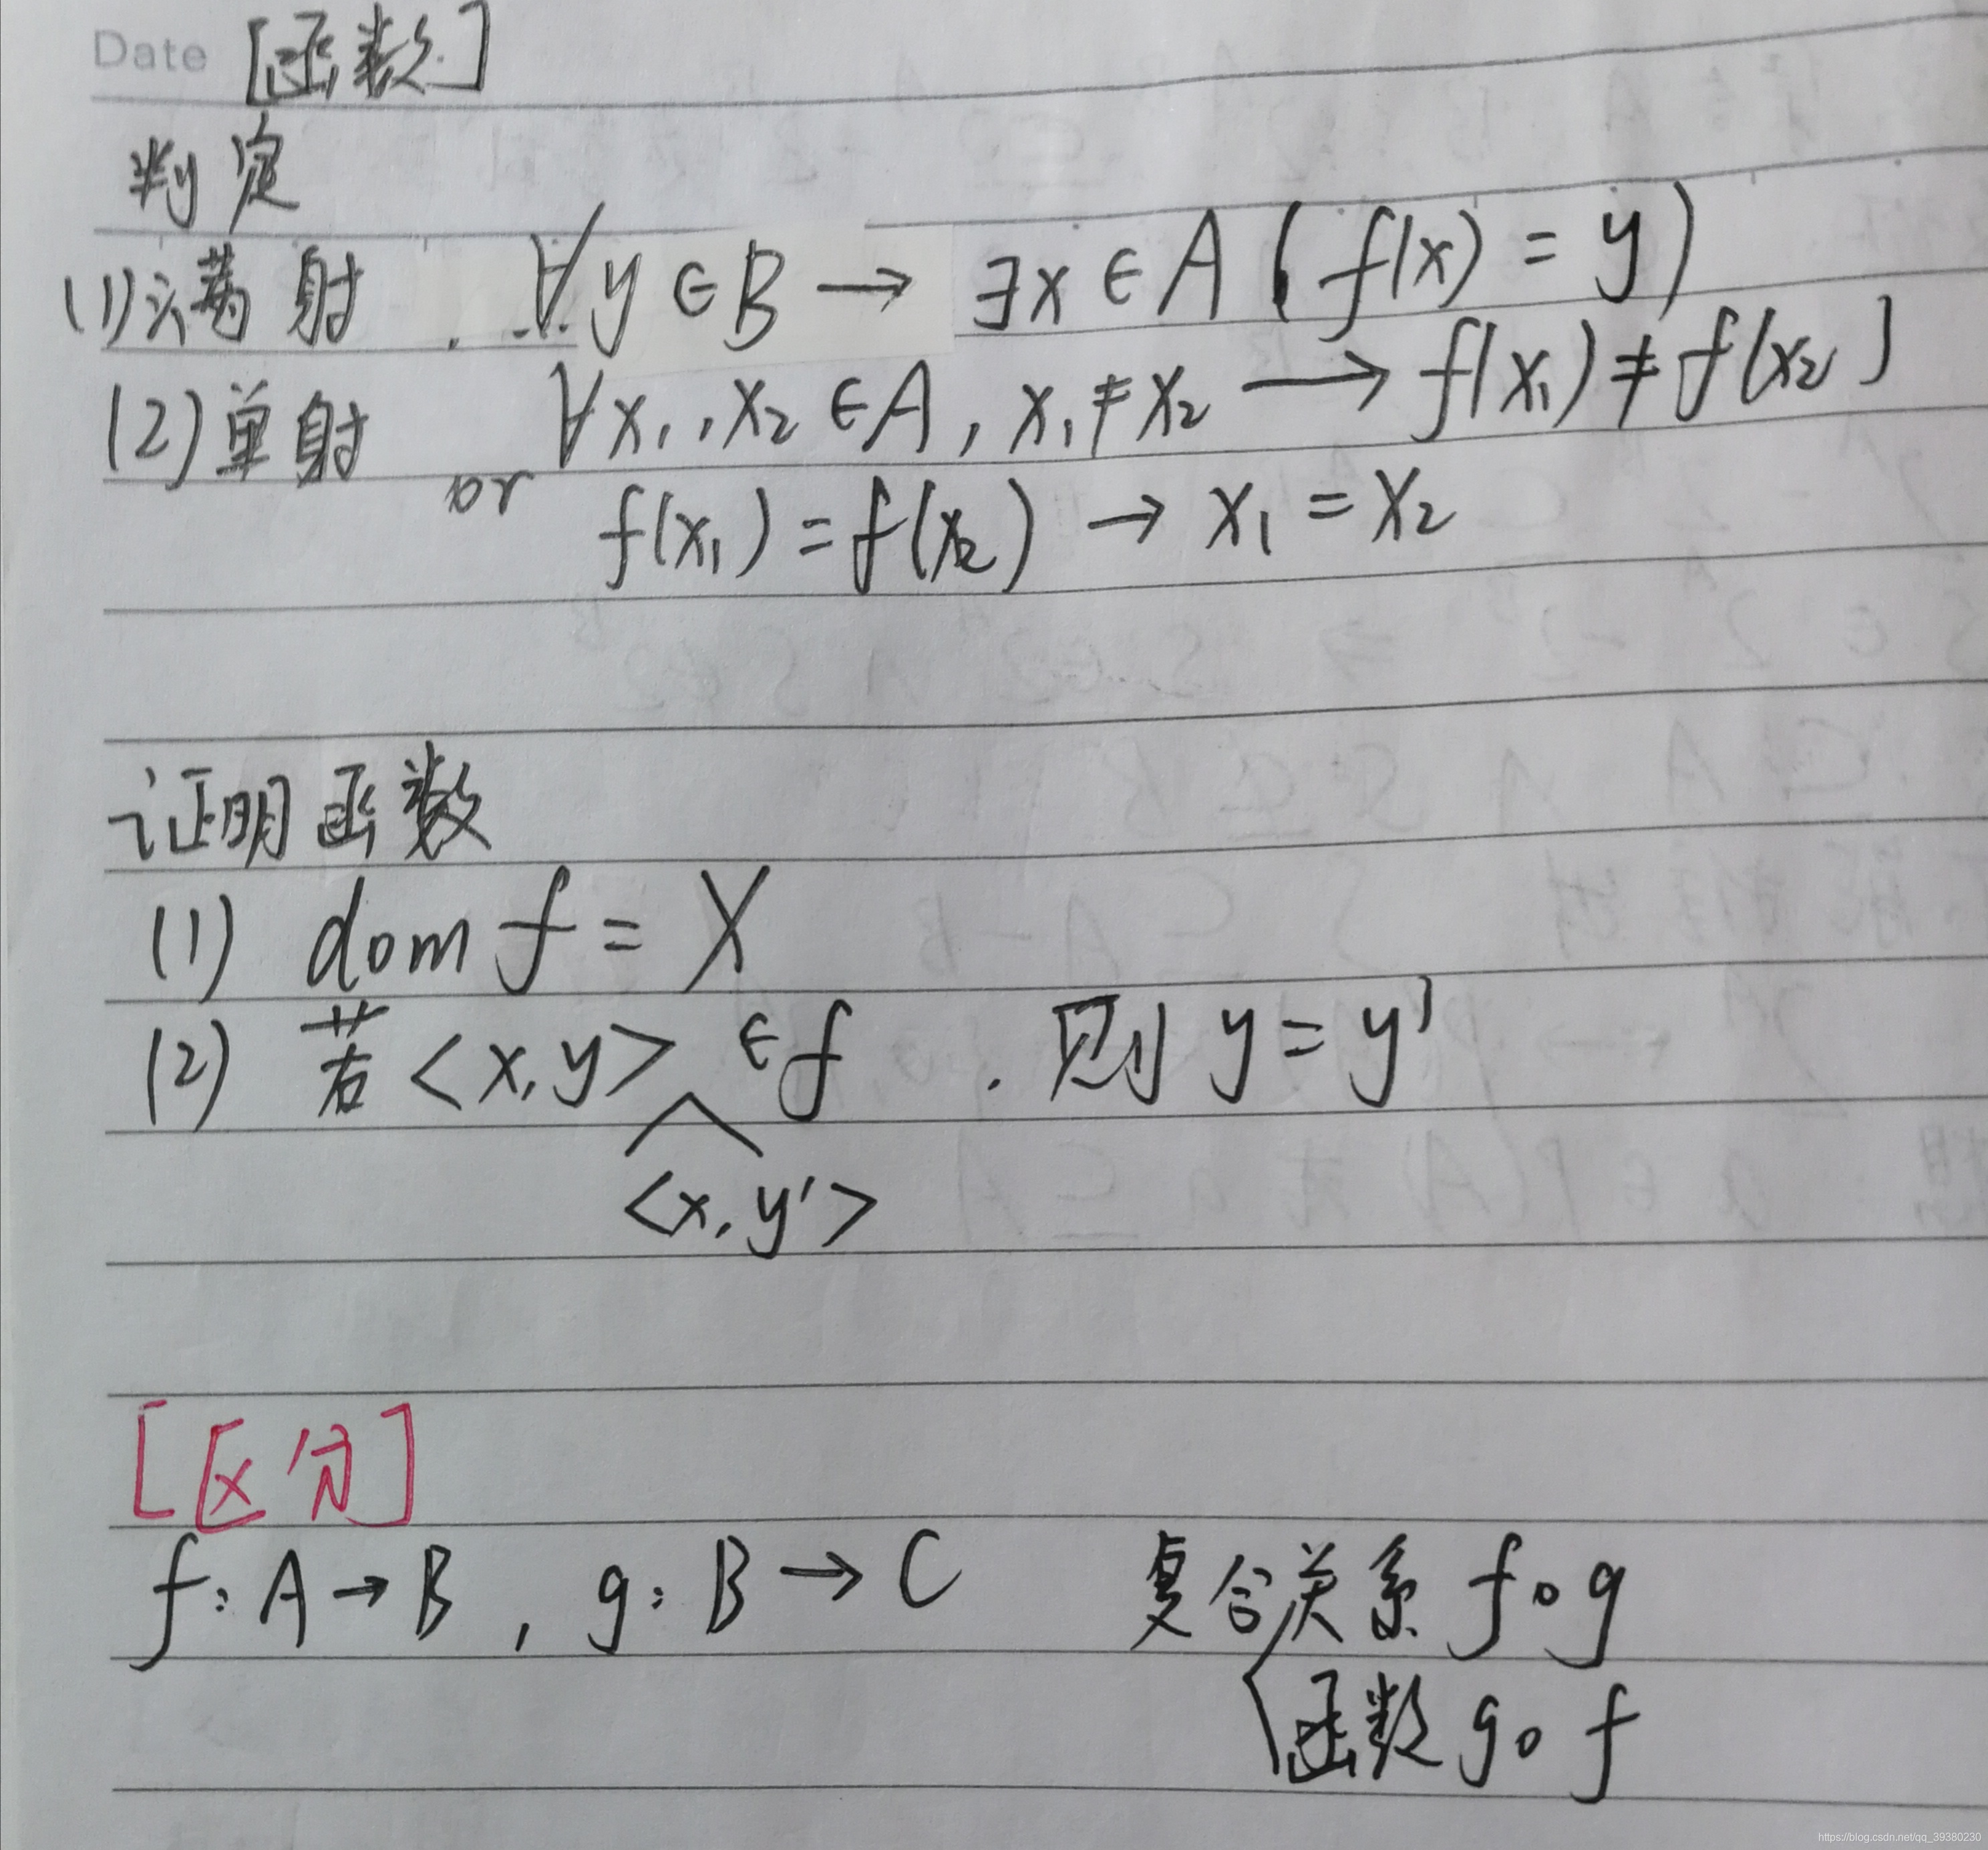 Date [函数]
判定
(1)满射 ∀y∈B → ∃x∈A (f(x) = y)
(2)单射 ∀x₁,x₂∈A, x₁≠x₂ → f(x₁)≠f(x₂)
or f(x₁)=f(x₂) → x₁=x₂
证明函数
(1) dom f = X
(2) 若<x,y> ∈f . 则 y=y'
∧
<x,y'>
[区分]
f: A→B , g: B→C 复合关系 f∘g
函数 g∘f
https://blog.csdn.net/qq_39380230